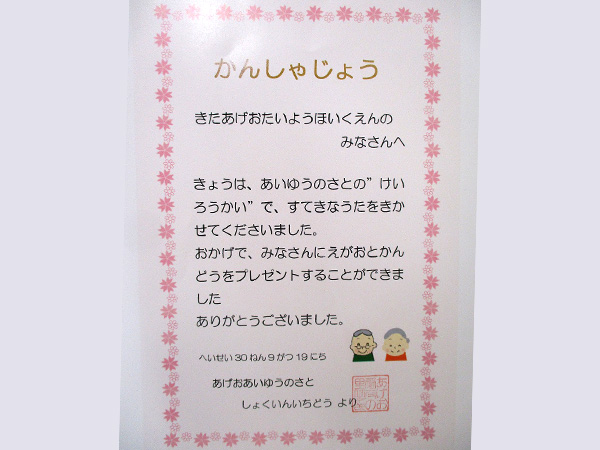 かんしゃじょう
きたあげおたいようほいくえんの
みなさんへ
きょうは、あいゆうのさとの”けい
ろうかい”で、すてきなうたをきか
せてくださいました。
おかげで、みなさんにえがおとかん
どうをプレゼントすることができま
した
ありがとうございました。
へいせい30ねん9がつ19にち
あげおあいゆうのさと
しょくいんいちどう より